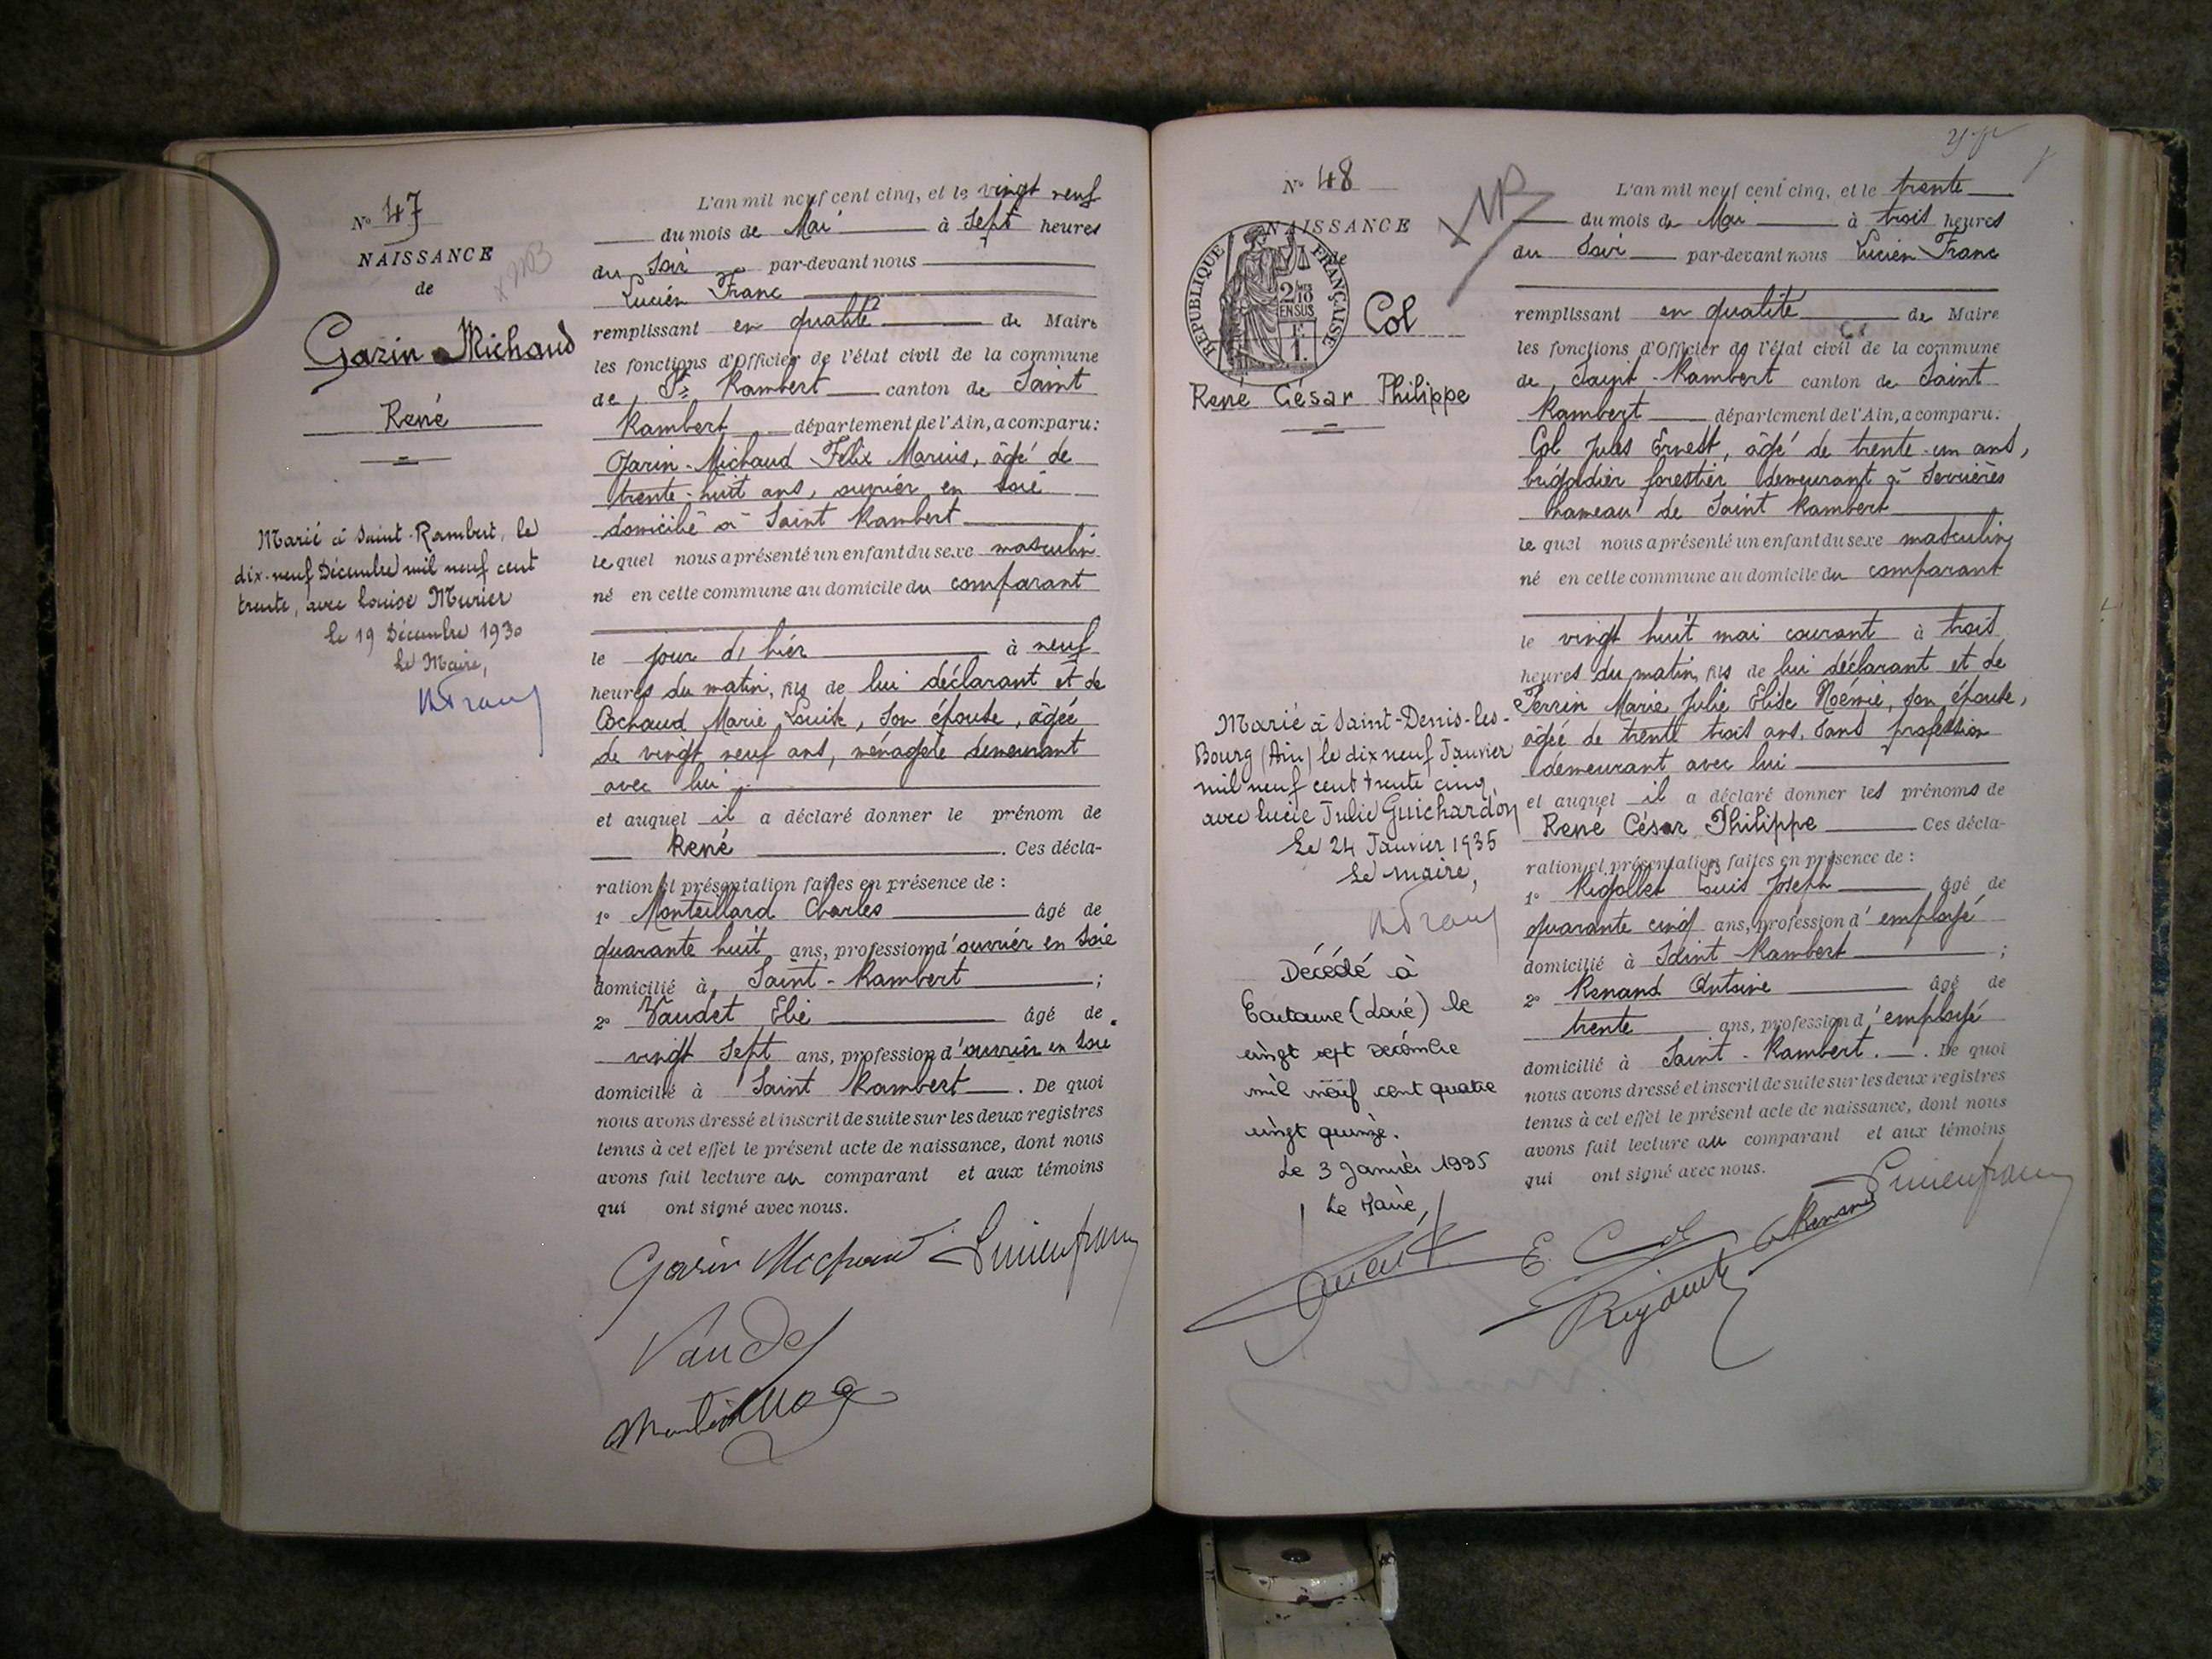 N° 47
NAISSANCE
de
Garin-Michaud
René
Marié à Saint-Rambert, le
dix-neuf Décembre mil neuf cent
trente, avec Louise Murier
le 19 Décembre 1930
Le Maire,
L'an mil neuf cent cinq, et le vingt neuf
du mois de Mai à Sept heures
du Soir par-devant nous
Lucien Franc
remplissant en qualité de Maire
les fonctions d'Officier de l'état civil de la commune
de St Rambert canton de Saint
Rambert département de l'Ain, a comparu:
Garin-Michaud Félix Marius, âgé de
trente-huit ans, ouvrier en soie
domicilié à Saint Rambert
lequel nous a présenté un enfant du sexe masculin
né en cette commune au domicile du comparant
le jour d'hier à neuf
heures du matin, fils de lui déclarant et de
Cochaud Marie Louise, son épouse, âgée
de vingt neuf ans, ménagère demeurant
avec lui
et auquel il a déclaré donner le prénom de
René . Ces décla-
ration et présentation faites en présence de :
1° Monteillard Charles âgé de
quarante huit ans, profession d'ouvrier en soie
domicilié à Saint-Rambert ;
2° Vaudet Elie âgé de
vingt sept ans, profession d'ouvrier en soie
domicilié à Saint Rambert . De quoi
nous avons dressé et inscrit de suite sur les deux registres
tenus à cet effet le présent acte de naissance, dont nous
avons fait lecture au comparant et aux témoins
qui ont signé avec nous.
Garin Michaud Lucien franc
Vaudet
Monteillard
N° 48
NAISSANCE
de
REPUBLIQUE FRANÇAISE
2/10 EN SUS
1 F.
Col
René César Philippe
Marié à Saint-Denis-les-
Bourg (Ain) le dix neuf Janvier
mil neuf cent trente cinq
avec Lucie Julie Guichardon
Le 24 Janvier 1935
Le maire,
Décédé à
(Loire) le
vingt sept Décembre
mil neuf cent quatre
vingt quinze.
Le 3 Janvier 1995
Le Maire,
L'an mil neuf cent cinq, et le trente
du mois de Mai à trois heures
du Soir par-devant nous Lucien Franc
remplissant en qualité de Maire
les fonctions d'Officier de l'état civil de la commune
de Saint-Rambert canton de Saint
Rambert département de l'Ain, a comparu:
Col Jules Ernest, âgé de trente-un ans,
brigadier forestier demeurant à Serrières
hameau de Saint Rambert
lequel nous a présenté un enfant du sexe masculin
né en cette commune au domicile du comparant
le vingt huit mai courant à trois
heures du matin, fils de lui déclarant et de
Perrin Marie Julie Elise Noémie, son épouse,
âgée de trente trois ans, sans profession
demeurant avec lui
et auquel il a déclaré donner les prénoms de
René César Philippe Ces décla-
ration et présentation faites en présence de :
1° Rigollet Louis Joseph âgé de
quarante cinq ans, profession d'employé
domicilié à Saint-Rambert ;
2° Renand Antoine âgé de
trente ans, profession d'employé
domicilié à Saint-Rambert. . De quoi
nous avons dressé et inscrit de suite sur les deux registres
tenus à cet effet le présent acte de naissance, dont nous
avons fait lecture au comparant et aux témoins
qui ont signé avec nous.
Lucien franc
E. Col Renand